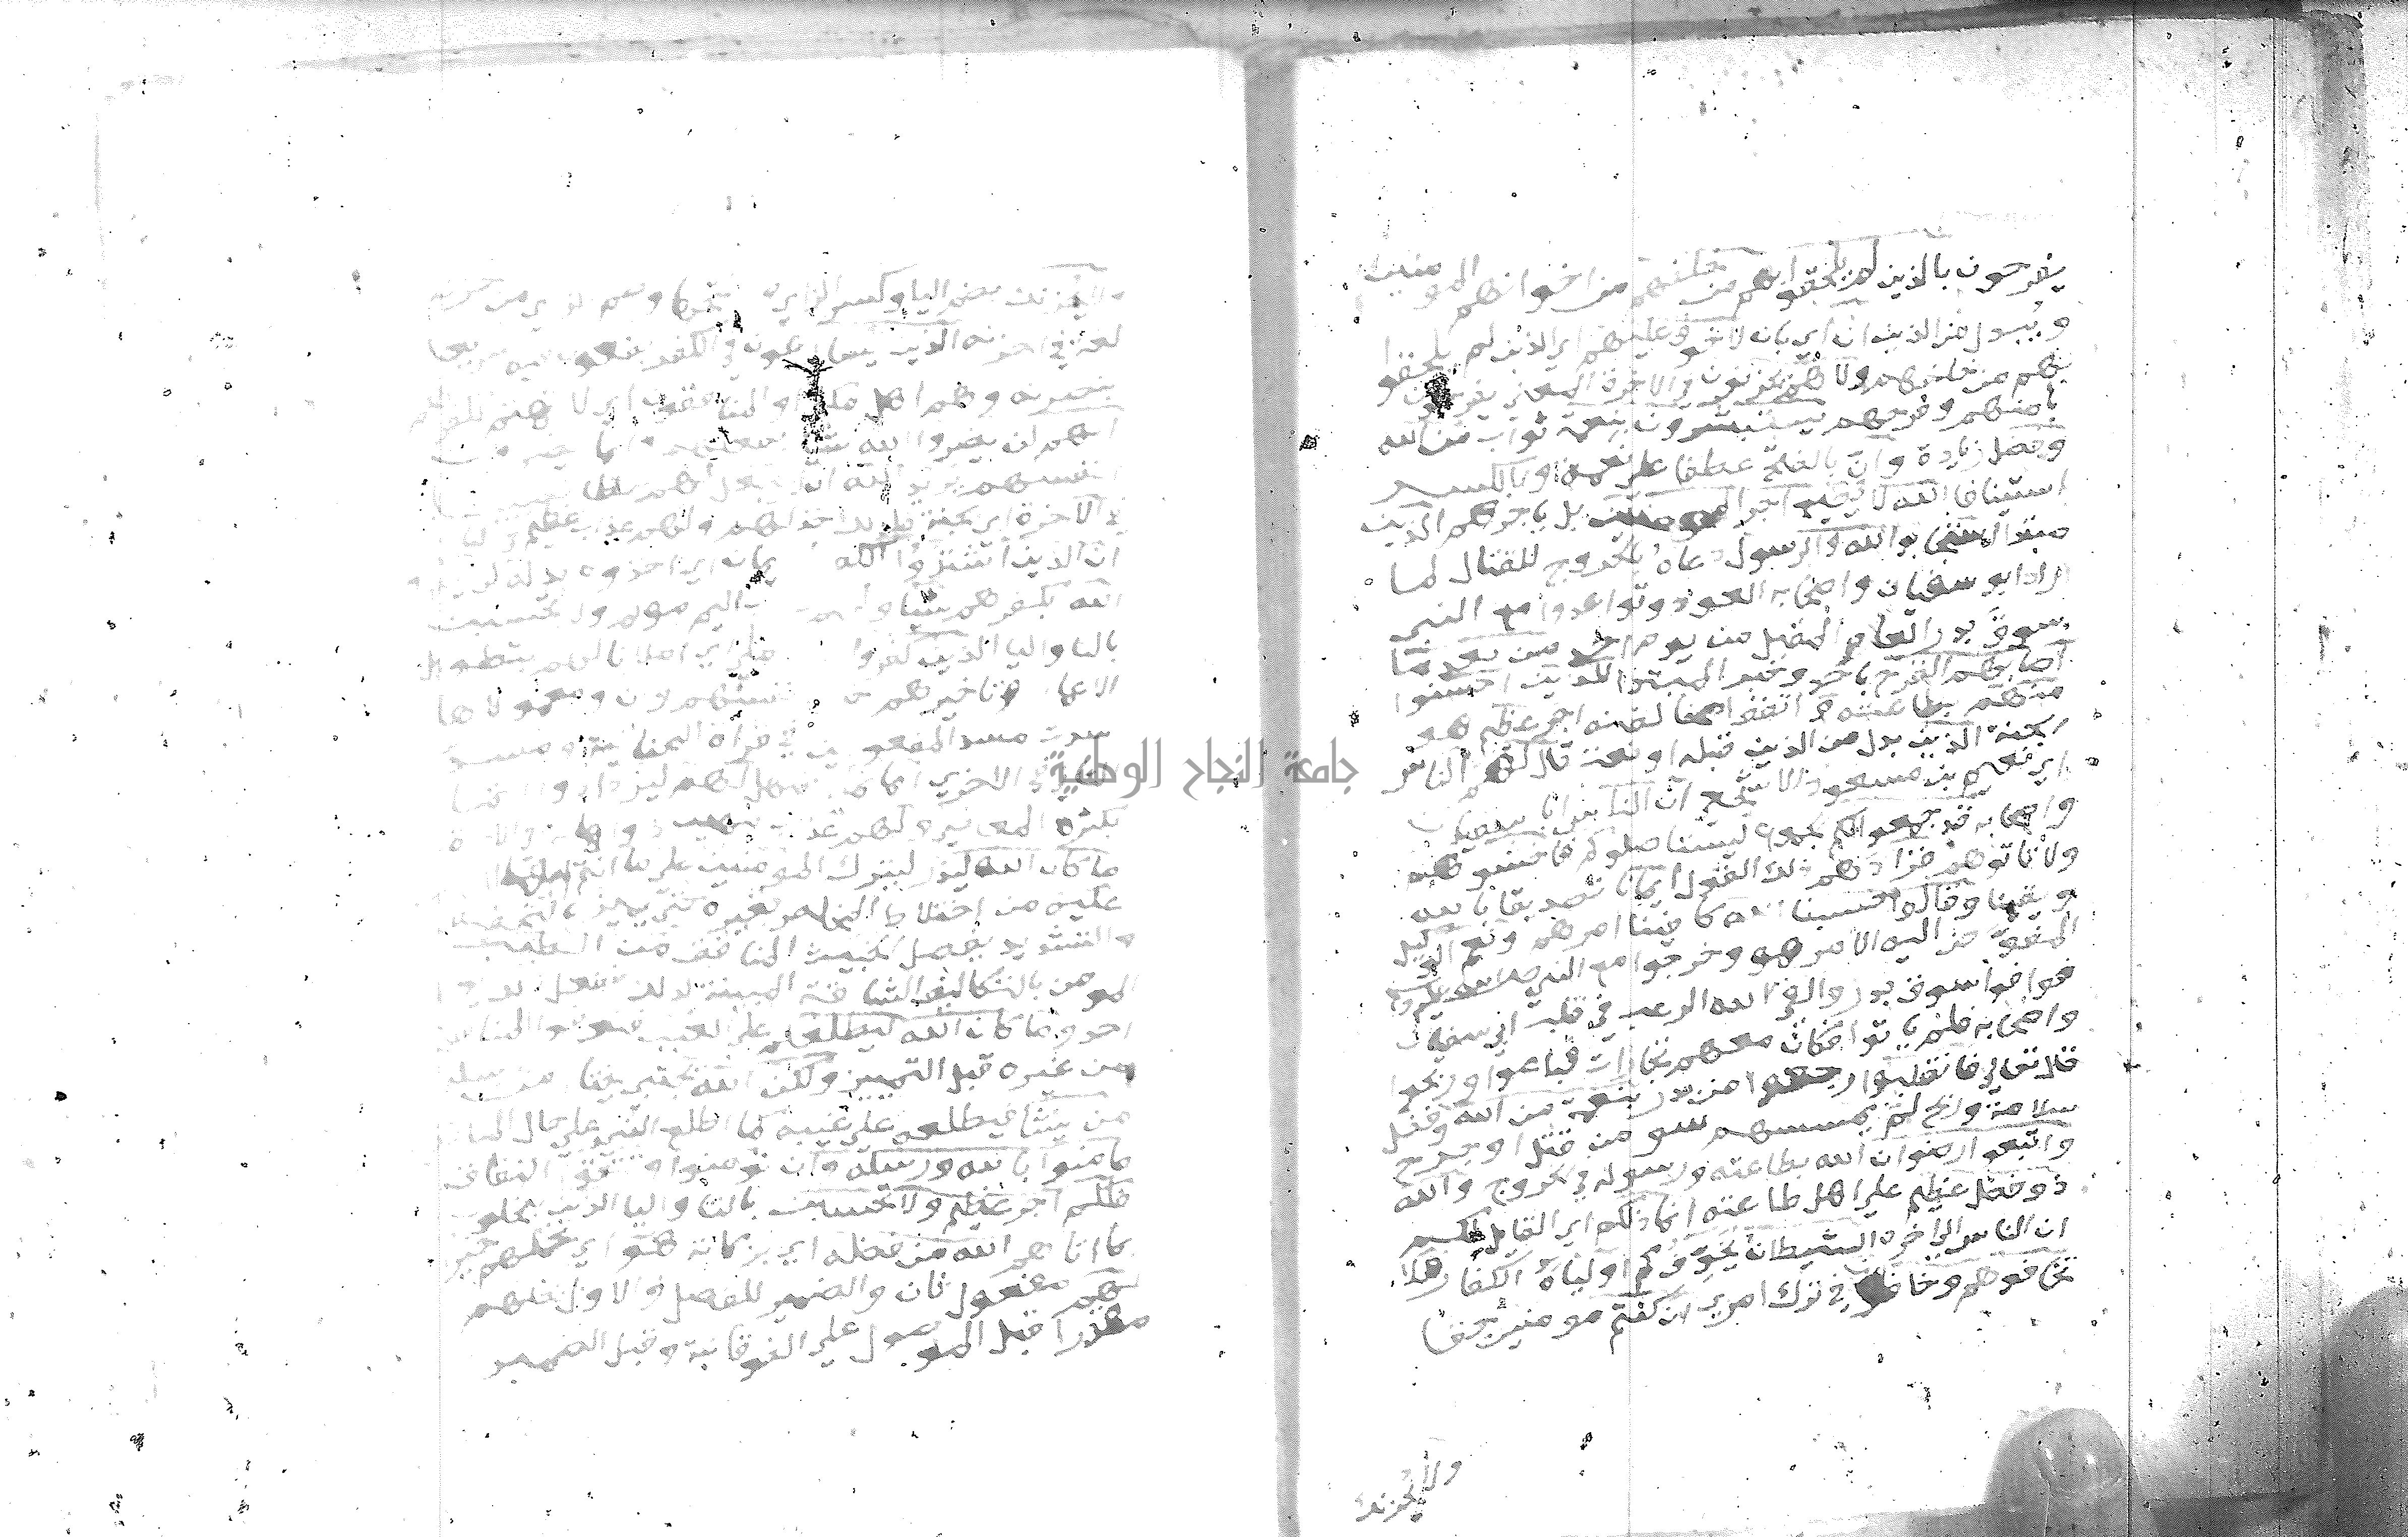 يفرحون بالذين لم يلحقوا بهم من خلفهم من اخوانهم المومنين
ويبدل من الذين ان اي بان لا خوف عليهم اي الذين لم يلحقوا
بهم من خلفهم ولا هم يحزنون في الاخرة المعني يفرحون
بامنهم وفرحهم يستبشرون بنعمة ثواب من الله
وفضل زيادة وان بالفتح عطفا علي نعمة وبالكسر
استينافا الله لا يضيع اجر المومنين بل ياجرهم الذين
مبتدا استجابوا لله والرسول دعاه بالخروج للقتال لما
اراد ابو سفيان واصحابه العود وتواعدوا مع النبي
سوق بدر العام المقبل من يوم احد من بعد ما
اصابهم القرح باحد وخبر المبتدا للذين احسنوا
منهم بطاعته واتقوا مخالفته اجر عظيم هو
الجنة الذين بدل من الذين قبله او نعت قال لهم الناس
اي نعيم بن مسعود الاشجعي ان الناس ابا سفيان
واصحابه قد جمعوا لكم الجموع ليستاصلوكم فاخشوهم
ولا تاتوهم فزادهم ذلك القول ايمانا تصديقا بالله
ويقينا وقالوا حسبنا الله كافينا امرهم ونعم الوكيل
المفوض اليه الامر هو وخرجوا مع النبي صلى الله عليه وسلم
فوافوا سوق بدر والقي الله الرعب في قلب ابي سفيان
واصحابه فلم ياتوا وكان معهم تجارات فباعوا وربحوا
قال تعالي فانقلبوا رجعوا من بدر بنعمة من الله وفضل
سلامة وربح لم يمسسهم سو من قتل او جرح
واتبعوا رضوان الله بطاعته ورسوله في الخروج والله
ذو فضل عظيم علي اهل طاعته انما ذلكم اي القايل لكم
ان الناس الي اخره الشيطان يخوفكم اولياه الكفار فلا
تخافوهم وخافون في ترك امري ان كنتم مومنين حقا
ولا يحزنك
ولا يحزنك بضم اليا وكسر الزاي وبفتحها وضم الزاي من حزنه
لغة في احزنه الذين يسارعون في الكفر يقعون فيه سريعا
بنصرته وهم اهل مكة او المنافقون اي لا تهتم لكفرهم
انهم لن يضروا الله شيا بفعلهم وانما يضرون
انفسهم يريد الله ان لا يجعل لهم حظا نصيبا
في الاخرة اي الجنة فلذلك خذلهم ولهم عذاب عظيم
ان الذين اشتروا الكفر بالايمان اي اخذوه بدله لن يضروا
الله بكفرهم شيا ولهم عذاب اليم مولم ولا يحسبن
بالتا واليا الذين كفروا انما نملي اي املانا لهم بتطويل
الاعمار وتاخيرهم خير لانفسهم وان ومعمولاها
سدت مسد المفعولين في قراة التحتانية ومسد
الثاني في الاخري انما نملي نمهل لهم ليزدادوا اثما
بكثرة المعاصي ولهم عذاب مهين ذو اهانة
ما كان الله ليذر ليترك المومنين علي ما انتم ايها الناس
عليه من اختلاط المخلص بغيره حتي يميز بالتخفيف
والتشديد يفصل الخبيث المنافق من الطيب
المومن بالتكاليف الشاقة المبينة لذلك ففعل ذلك يوم
احد وما كان الله ليطلعكم علي الغيب فتعرفوا المنافق
من غيره قبل التمييز ولكن الله يجتبي يختار من رسله
من يشا فيطلعه علي غيبه كما اطلع النبي علي حال المنافقين
فامنوا بالله ورسله وان تومنوا وتتقوا النفاق
فلكم اجر عظيم ولا تحسبن بالتا واليا الذين يبخلون
بما اتاهم الله من فضله اي بزكاته هو اي بخلهم خيرا
لهم مفعول ثان والضمير للفصل والاول بخلهم
مقدرا قبل الموصول علي الفوقانية وقبل الضمير
جامعة النجاح الوطنية